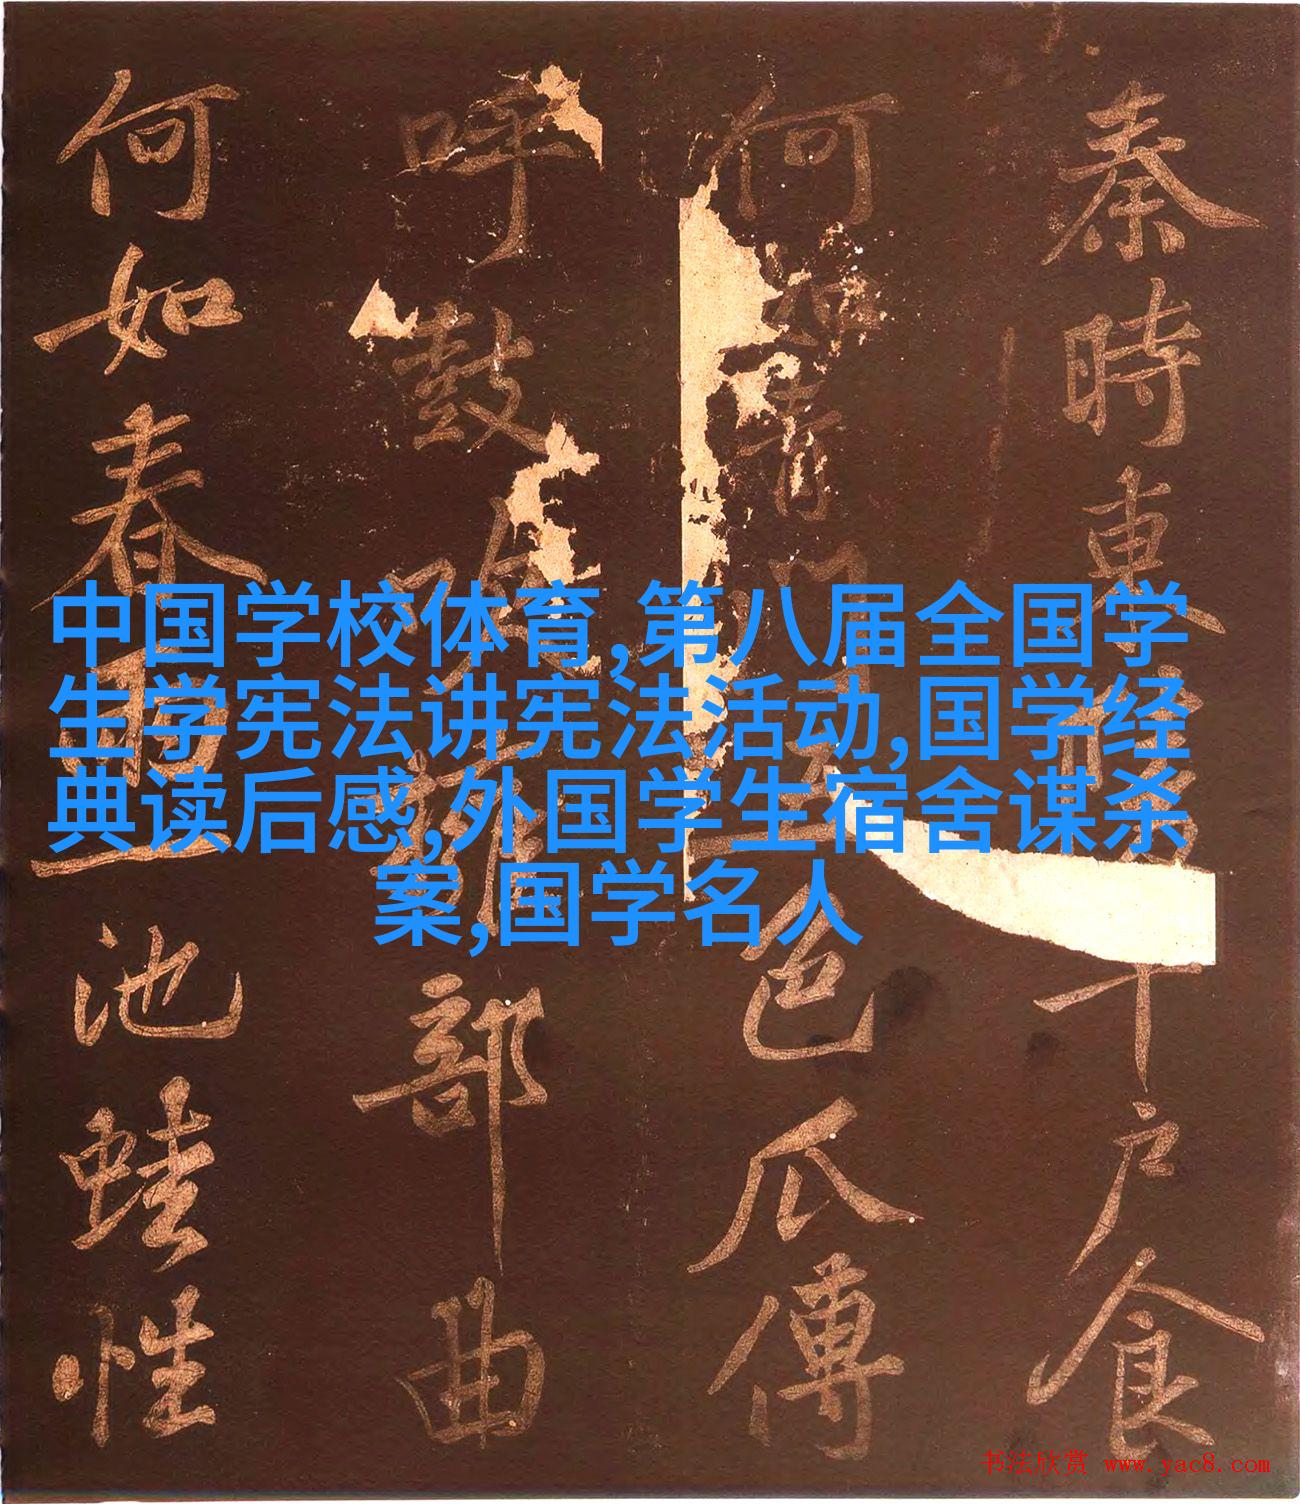 中国学校体育,第八届全国学
生学宪法讲宪法活动,国学经
典读后感,外国学生宿舍谋杀
案,国学名人
秦時東千户食
何如青門五色瓜傳
呼鼓吹部曲
何如春雨一池蛙性
书法欣赏 www.yac8.com